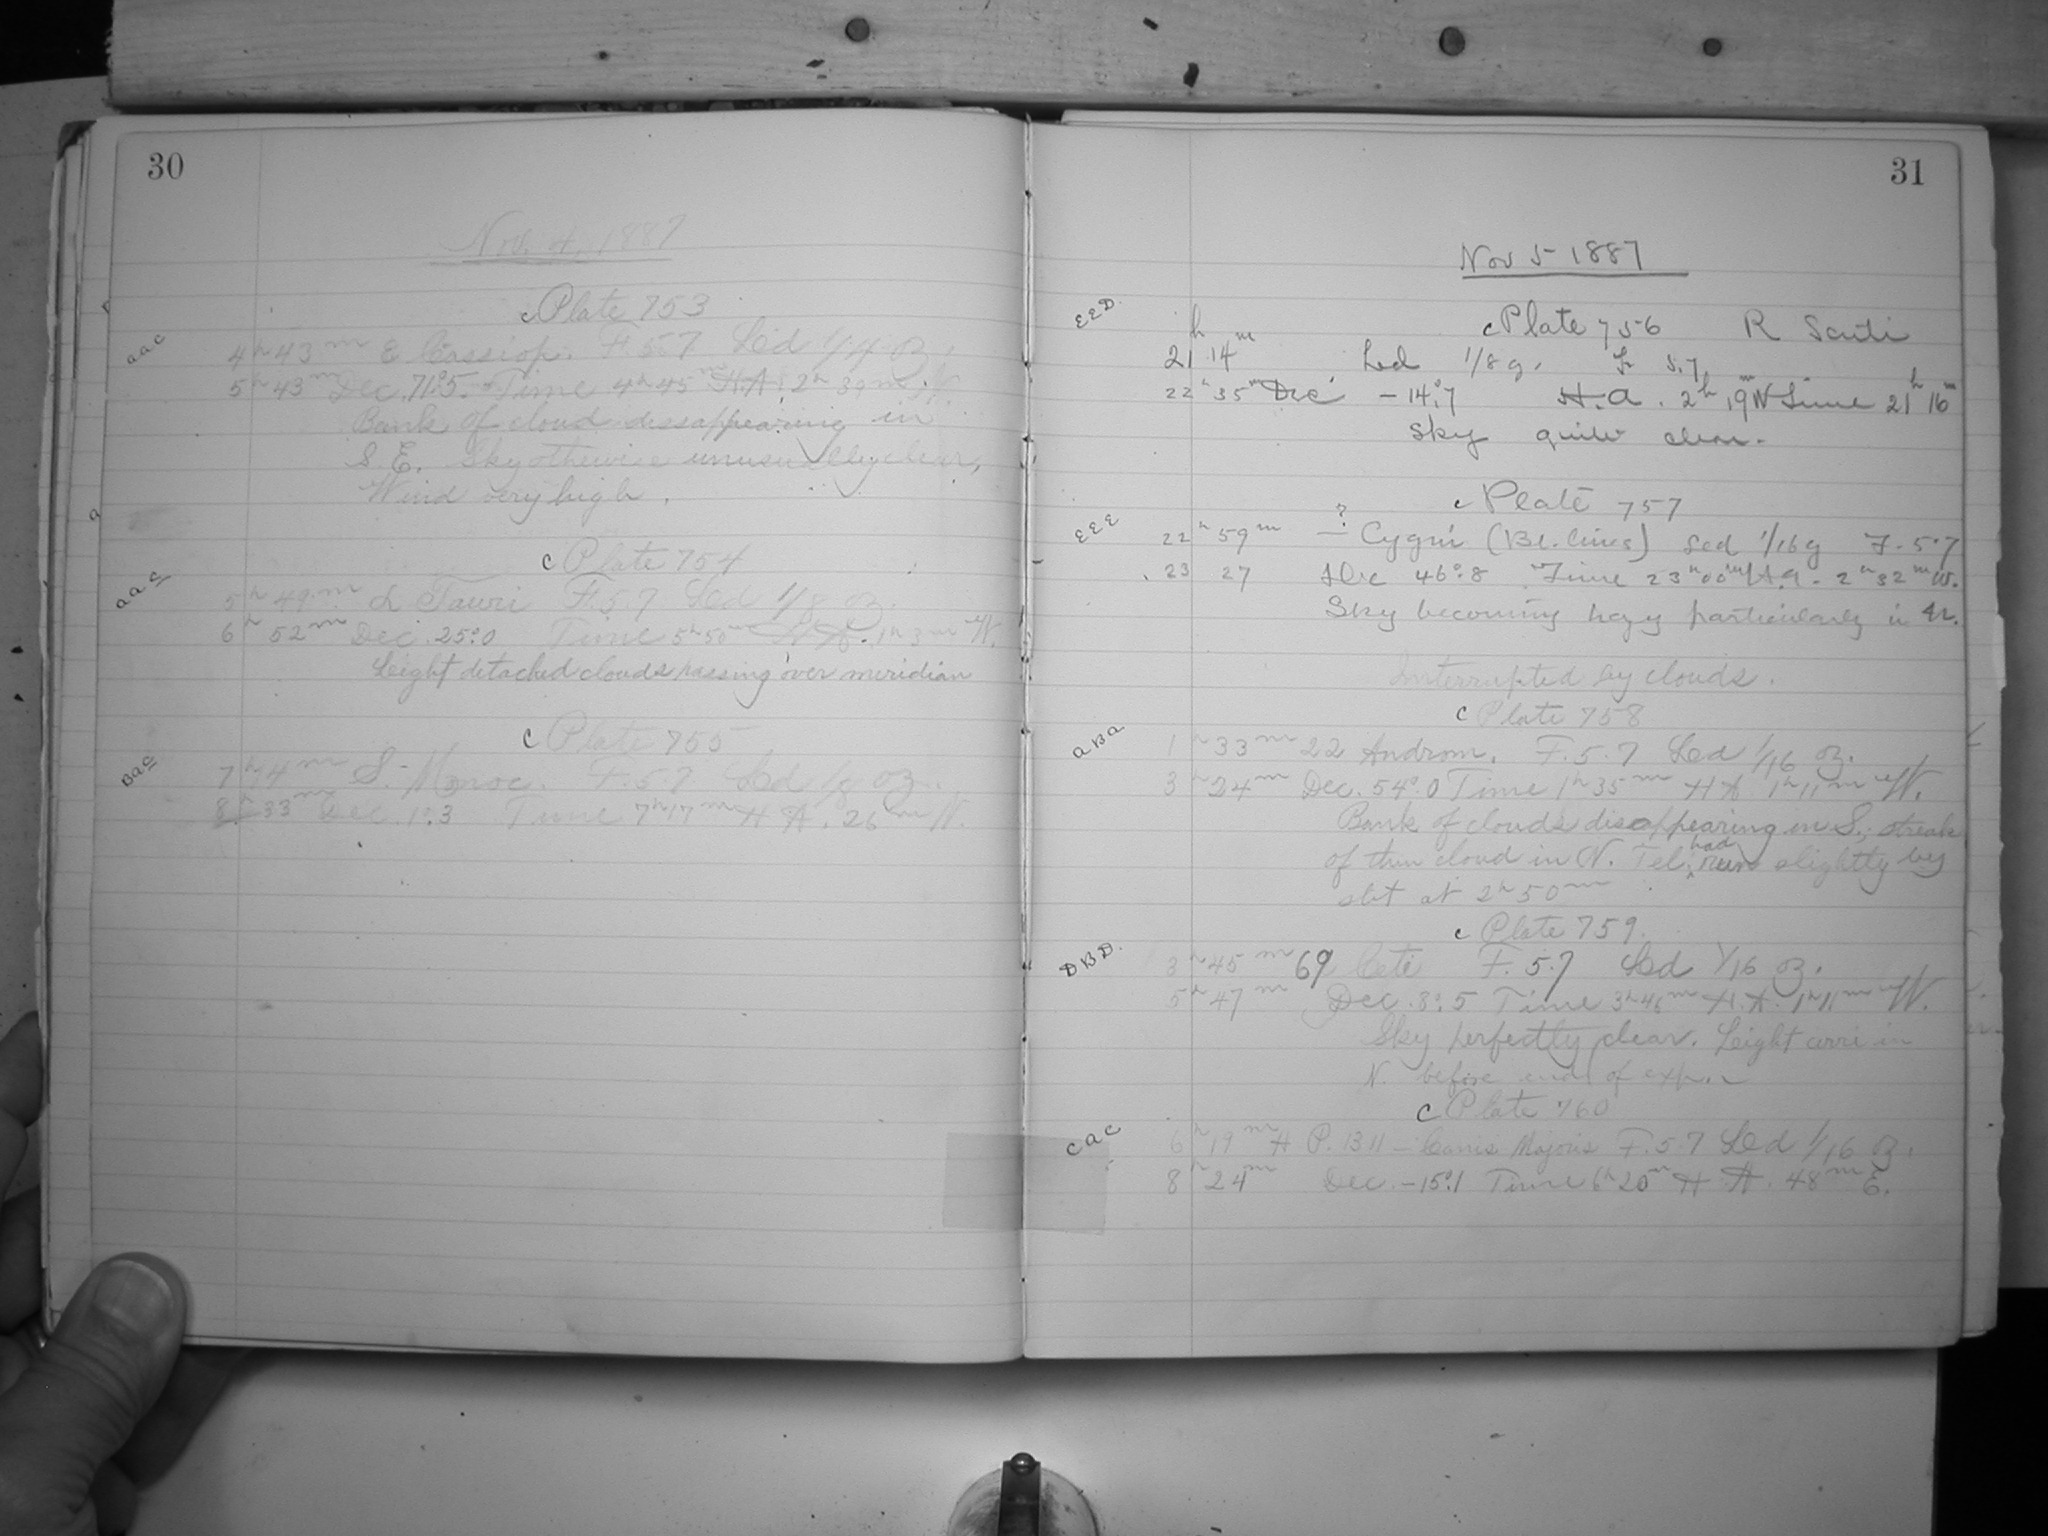 30
Nov. 4, 1887
c Plate 753
aac
4h 43m & Cassiop. F. 5.7 Led 1/4 oz.
5h 43m Dec. 71°.5. Time 4h 45m H.A. 2h 39m W.
Bank of cloud dissappearing in
S. E. Sky otherwise unusually clear,
Wind very high.
c Plate 754
aac
5h 49m Tauri F. 5.7 Led 1/8 oz.
6h 52m Dec. 25°.0 Time 5h 50m H.A. 1h 3m W.
Light detached clouds passing over meridian
c Plate 755
Bac
7h 14m S. Monoc. F. 5.7 Led 1/8 oz.
8h 33m Dec. 1°.3 Time 7h 17m H.A. 26m W.
31
Nov 5 1887
EED.
c Plate 756 R Scuti
21h 14m Led 1/8 g. F 5.7,
22h 35m Dec - 14°.7 H.a. 2h 19m W Time 21h 16m
Sky quite clear.
c Plate 757
EEE
22h 59m — ? Cygni (Br. lines) Led 1/16 g F. 5.7
23 27 Dec 46°.8 Time 23h 00m H.a. 2h 32m W.
Sky becoming hazy particularly in W.
Interrupted by clouds.
c Plate 758
aBa
1h 33m 22 Androm. F. 5.7 Led 1/16 oz.
3h 24m Dec. 54°.0 Time 1h 35m HA 1h 11m W.
Bank of clouds disappearing in S.; streak
of thin cloud in N. Tel. had run slightly by
slit at 2h 50m
c Plate 759.
DBD.
3h 45m 69 Ceti F. 5.7 Led 1/16 oz.
5h 47m Dec. 8°.5 Time 3h 46m H.A. 1h 11m W.
Sky perfectly clear. Light cirri in
N. before end of exp.
c Plate 760
cac
6h 19m H P. 1311 - Canis Majoris F. 5.7 Led 1/16 oz.
8h 24m Dec. -15°.1 Time 6h 20m H.A. 48m E.